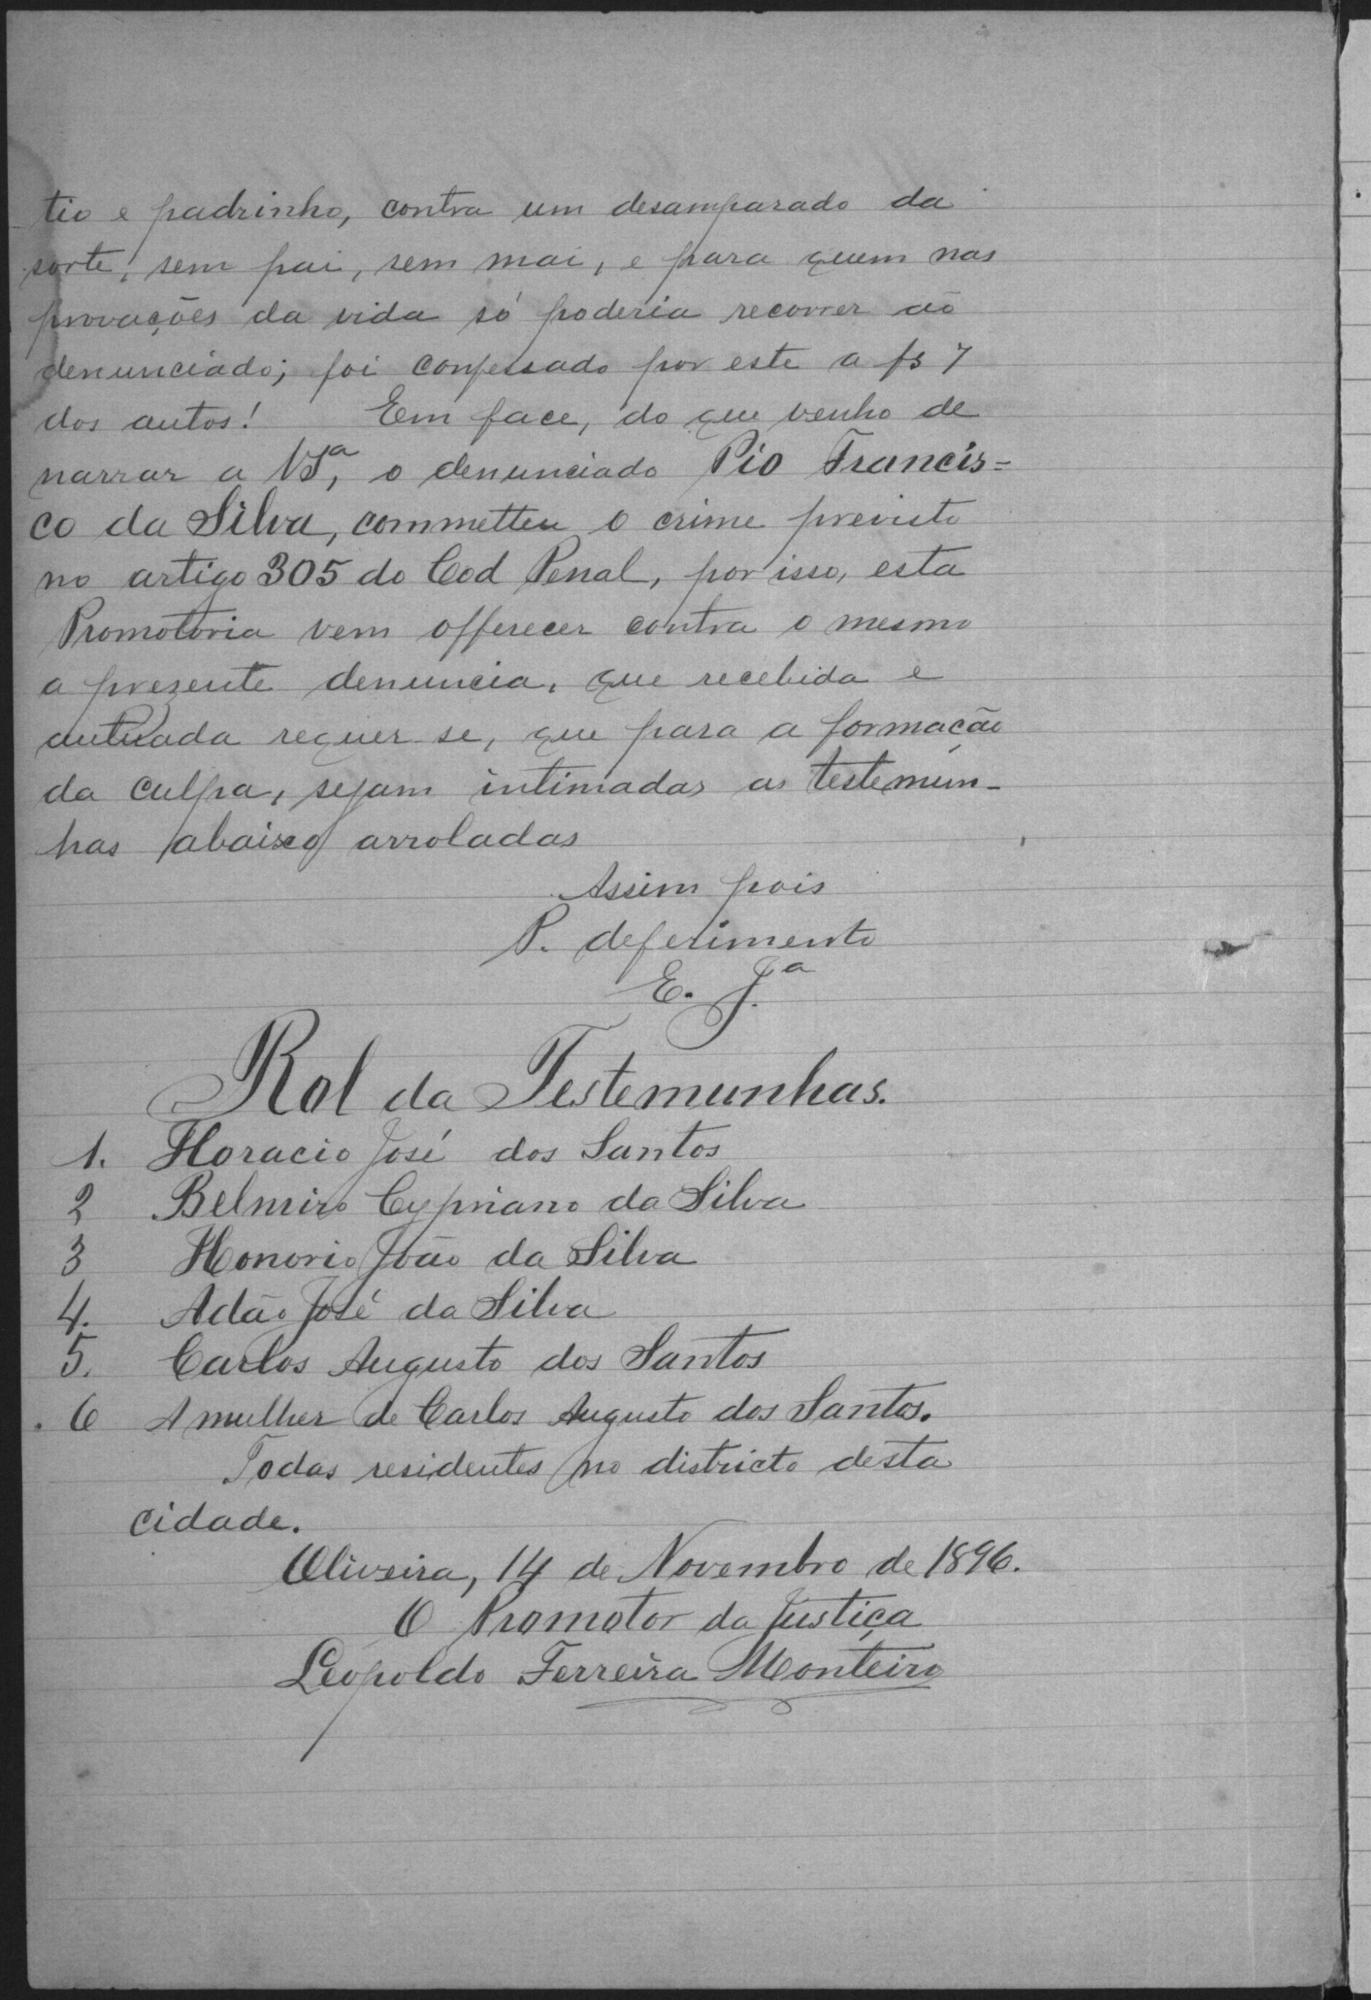 tio e padrinho, contra um desamparado da
sorte, sem pai, sem mai, e para quem nas
provações da vida só poderia recorrer ao
denunciado; foi confessado por este a fs 7
dos autos! Em face, do que venho de
narrar a VSª, o denunciado Pio Francis=
co da Silva, commetteu o crime previsto
no artigo 305 do Cod Penal, por isso, esta
Promotoria vem offerecer contra o mesmo
a prezente denuncia, que recebida e
autuada requer se, que para a formação
da culpa, sejam intimadas as testemun-
has abaixo arroladas
Assim pois
P. deferimento
E. J.ª
Rol da Testemunhas.
1. Horacio José dos Santos
2 Belmiro Cypriano da Silva
3 Honorio João da Silva
4. Adão José da Silva
5. Carlos Augusto dos Santos
6 A mulher de Carlos Augusto dos Santos.
Todas residentes no districto desta
cidade.
Oliveira, 14 de Novembro de 1896.
O Promotor da Justiça
Leopoldo Ferreira Monteiro